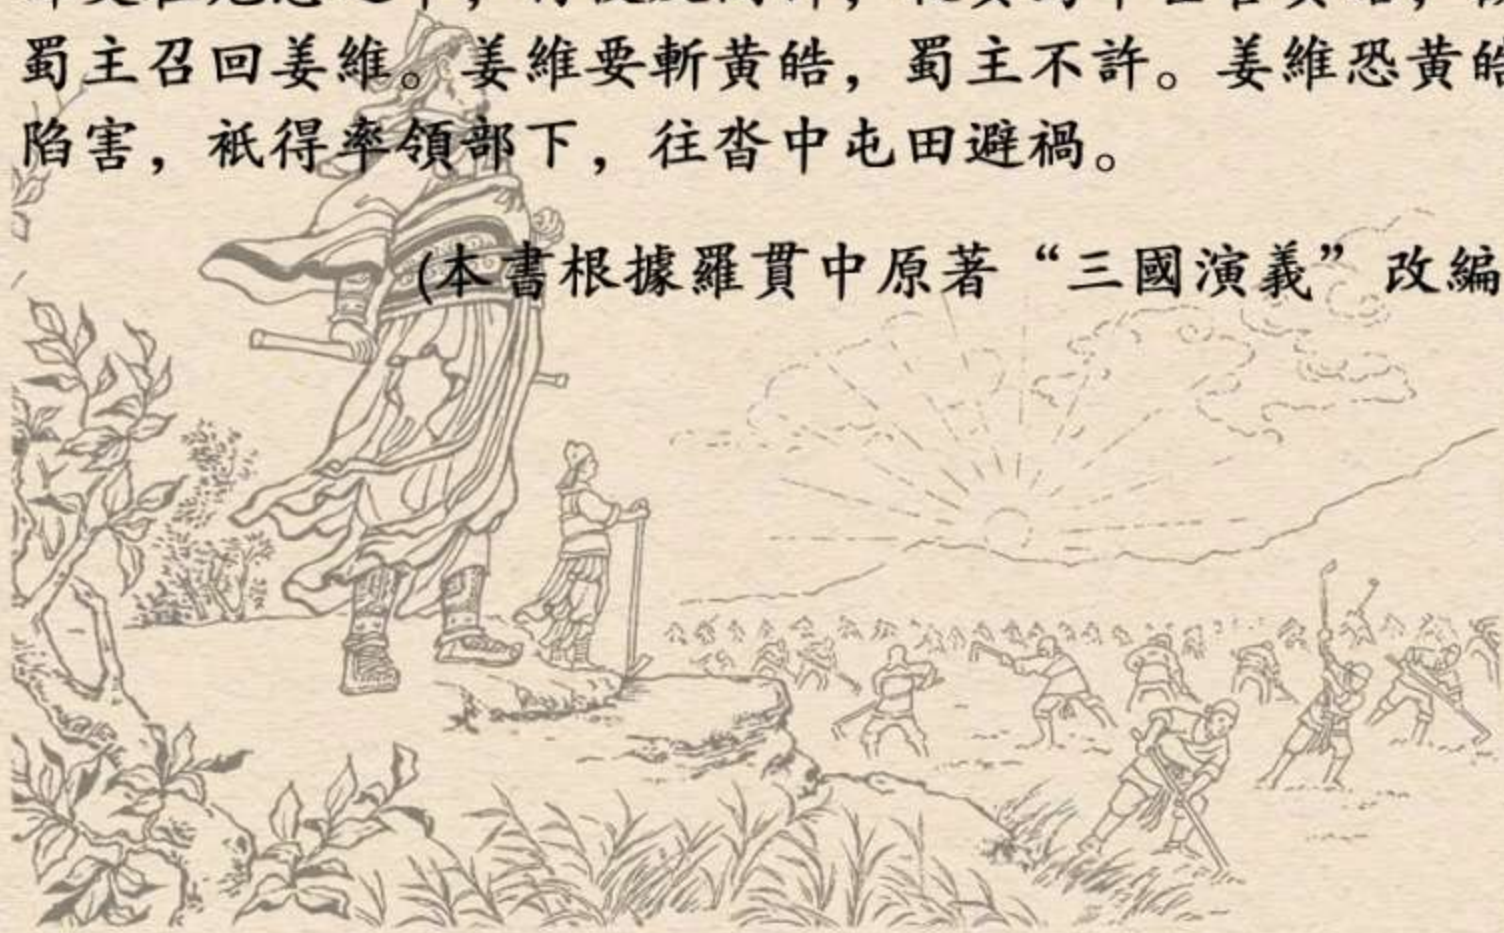 蜀主召回姜維。姜維要斬黄皓，蜀主不許。姜維恐黄皓
陷害，衹得率領部下，往沓中屯田避禍。
(本書根據羅貫中原著“三國演義”改編